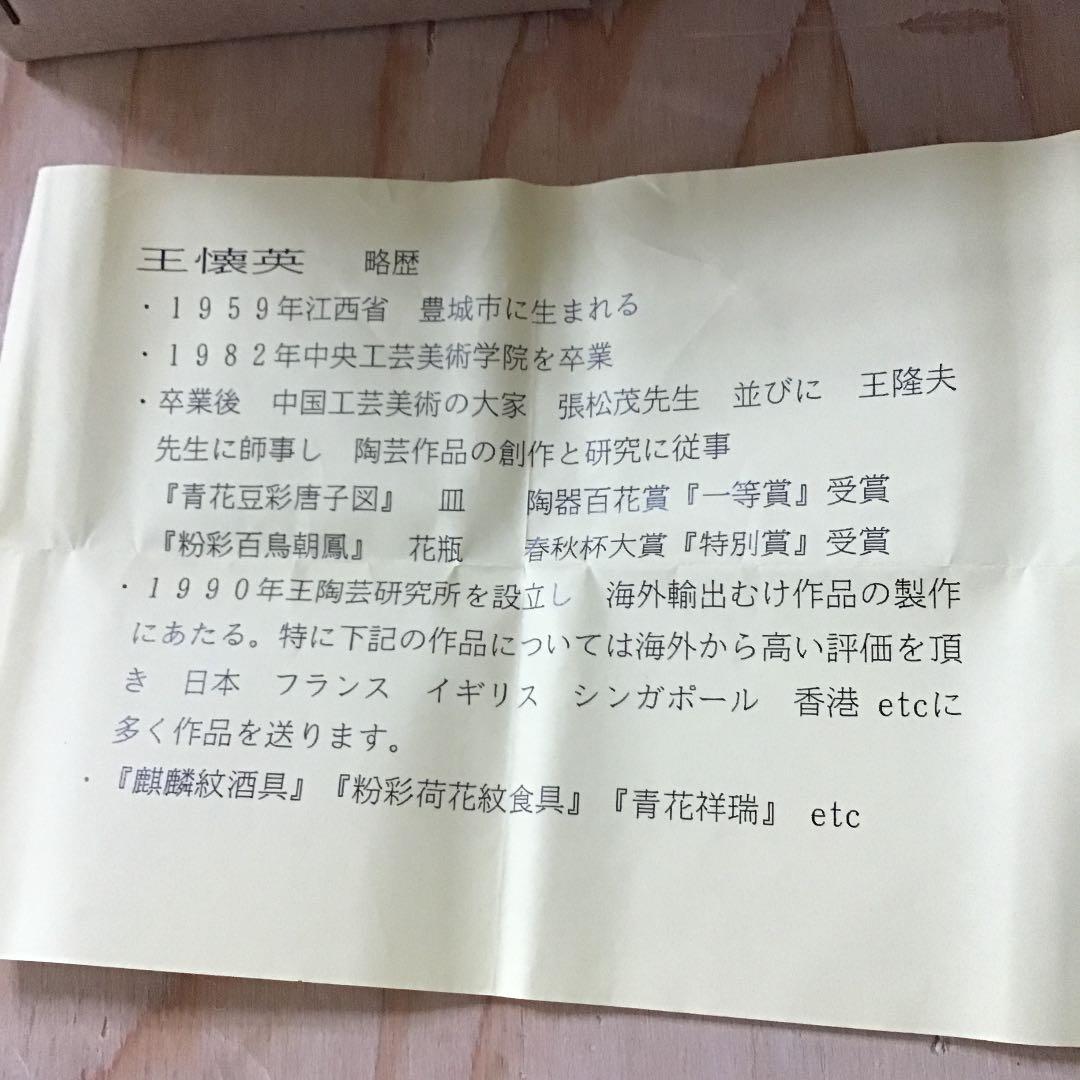 王懐英　略歴
・１９５９年江西省　豊城市に生まれる
・１９８２年中央工芸美術学院を卒業
・卒業後　中国工芸美術の大家　張松茂先生　並びに　王隆夫
先生に師事し　陶芸作品の創作と研究に従事
『青花豆彩唐子図』　皿　　陶器百花賞『一等賞』受賞
『粉彩百鳥朝鳳』　花瓶　　春秋杯大賞『特別賞』受賞
・１９９０年王陶芸研究所を設立し　海外輸出むけ作品の製作
にあたる。特に下記の作品については海外から高い評価を頂
き　日本　フランス　イギリス　シンガポール　香港 etcに
多く作品を送ります。
・『麒麟紋酒具』『粉彩荷花紋食具』『青花祥瑞』 etc